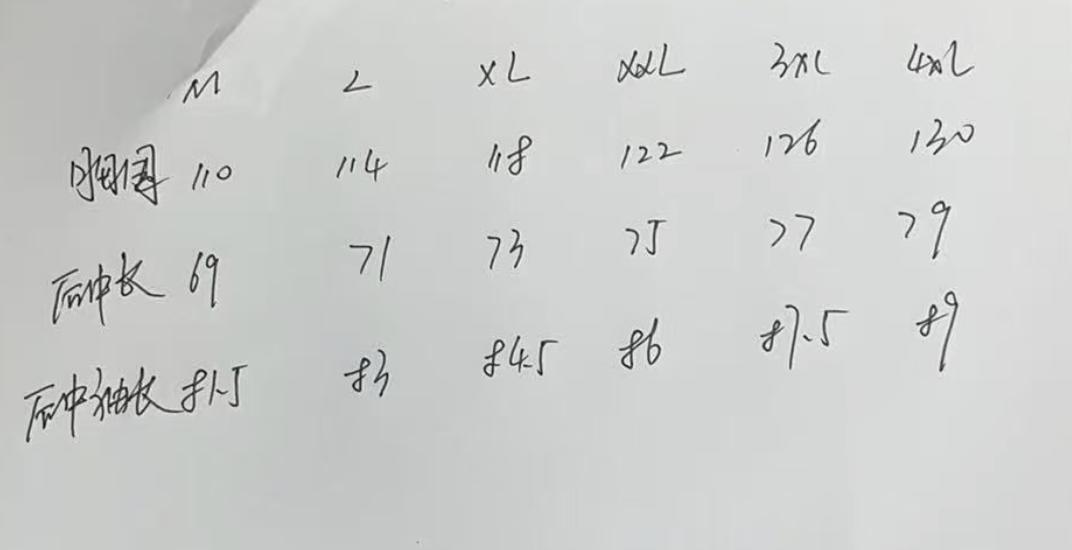 M L XL XXL 3XL 4XL
胸围 110 114 118 122 126 130
后中长 69 71 73 75 77 79
后中袖长 81.5 83 84.5 86 87.5 89